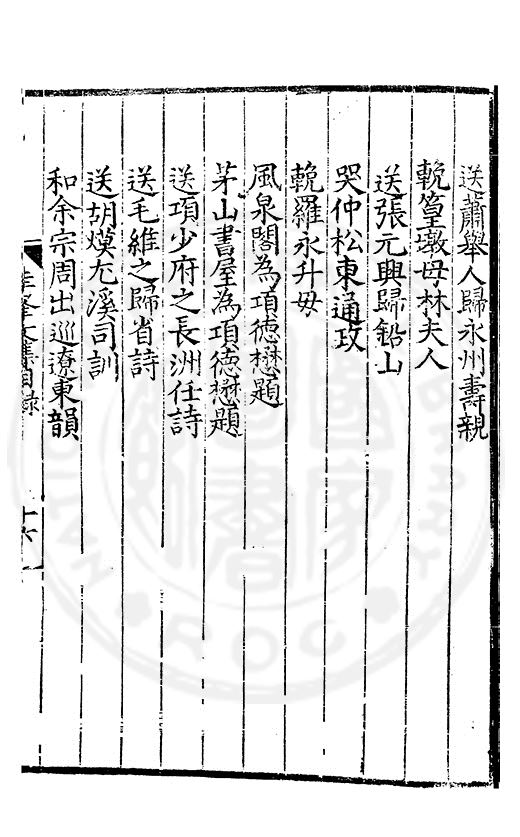 送蕭舉人歸永州壽親
輓篁墩母林夫人
送張元興歸鉛山
哭仲松東通政
輓羅永升母
風泉閣為項德懋題
茅山書屋為項德懋題
送項少府之長洲任詩
送毛維之歸省詩
送胡熯尤溪司訓
和余宗周出巡遼東韻
文集目錄
十六